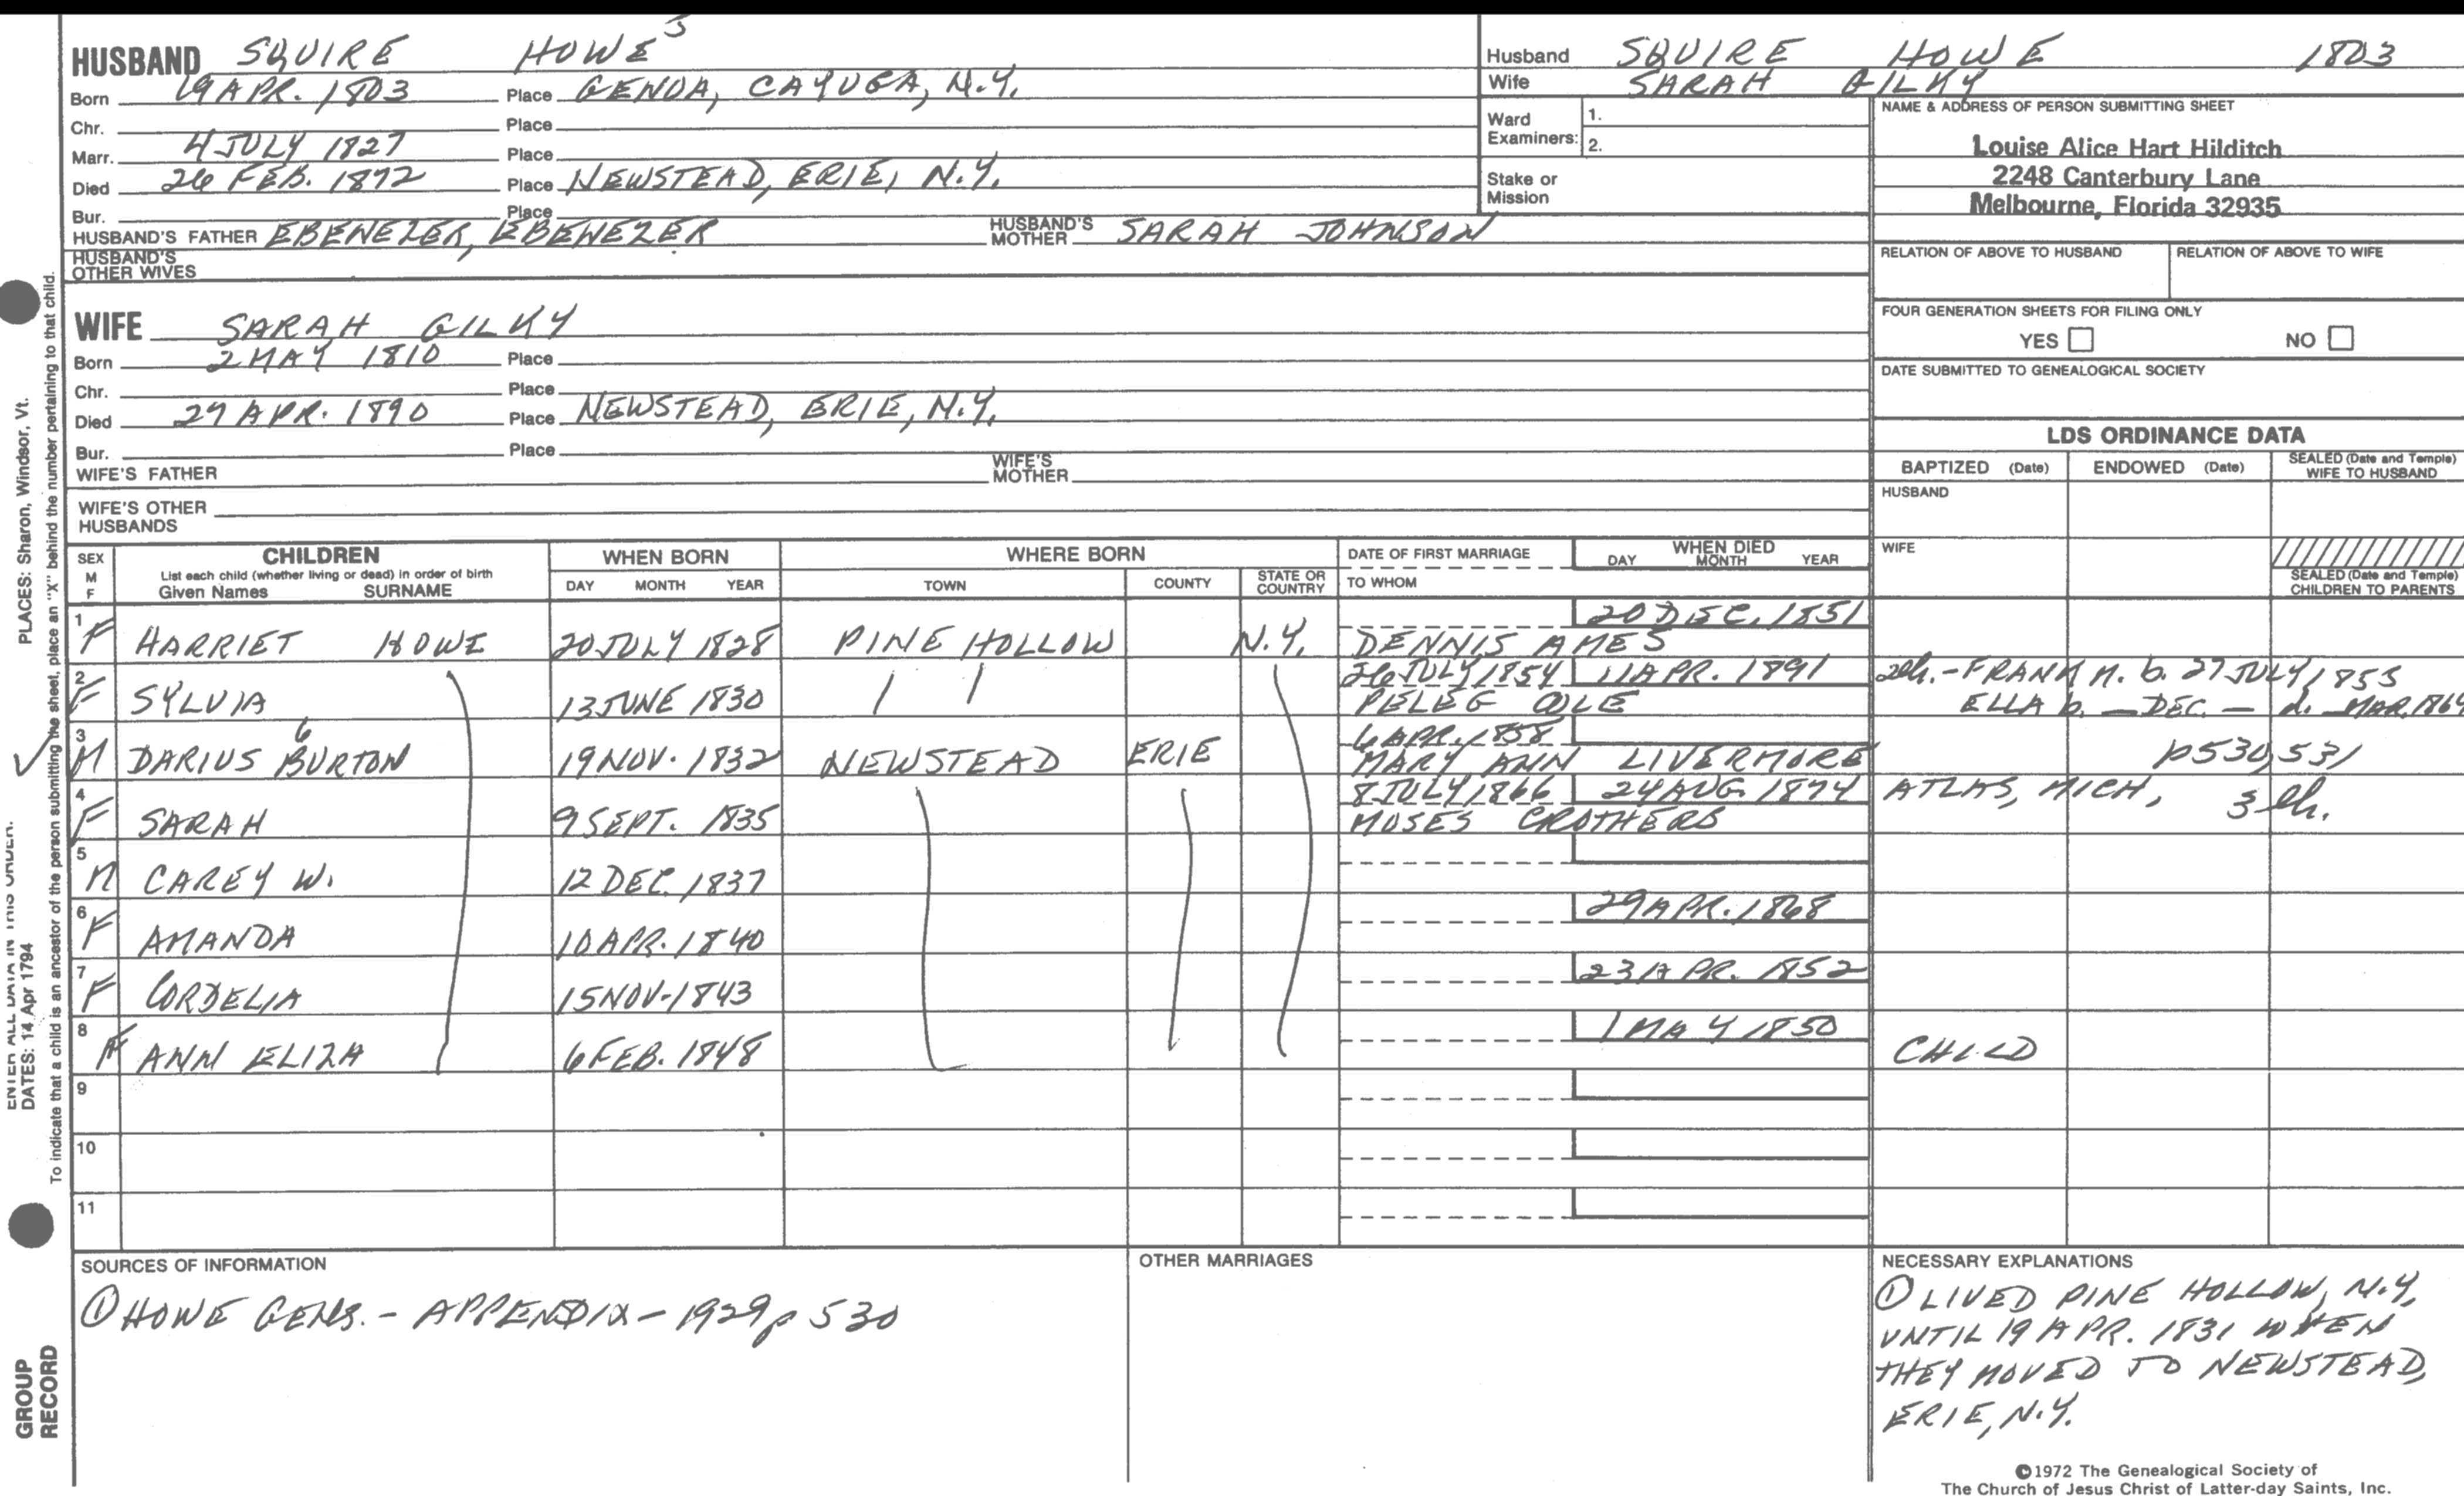 HUSBAND SQUIRE HOWE 5
Born 19 APR. 1803 Place GENOA, CAYUGA, N.Y.
Chr. Place
Marr. 4 JULY 1827 Place
Died 26 FEB. 1872 Place NEWSTEAD, ERIE, N.Y.
Bur. Place
HUSBAND'S FATHER EBENEZER, EBENEZER HUSBAND'S MOTHER SARAH JOHNSON
HUSBAND'S OTHER WIVES
WIFE SARAH GILKY
Born 2 MAY 1810 Place
Chr. Place
Died 27 APR. 1890 Place NEWSTEAD, ERIE, N.Y.
Bur. Place
WIFE'S FATHER WIFE'S MOTHER
WIFE'S OTHER HUSBANDS
Husband SQUIRE HOWE 1803
Wife SARAH GILKY
Ward Examiners: 1.
2.
Stake or Mission
NAME & ADDRESS OF PERSON SUBMITTING SHEET
Louise Alice Hart Hilditch
2248 Canterbury Lane
Melbourne, Florida 32935
RELATION OF ABOVE TO HUSBAND RELATION OF ABOVE TO WIFE
FOUR GENERATION SHEETS FOR FILING ONLY
YES NO
DATE SUBMITTED TO GENEALOGICAL SOCIETY
LDS ORDINANCE DATA
BAPTIZED (Date) ENDOWED (Date) SEALED (Date and Temple) WIFE TO HUSBAND
HUSBAND
WIFE
SEALED (Date and Temple) CHILDREN TO PARENTS
SEX M F
CHILDREN
List each child (whether living or dead) in order of birth
Given Names SURNAME
WHEN BORN
DAY MONTH YEAR
WHERE BORN
TOWN COUNTY STATE OR COUNTRY
DATE OF FIRST MARRIAGE
TO WHOM
WHEN DIED
DAY MONTH YEAR
20 DEC. 1851
1 F HARRIET HOWE 20 JULY 1828 PINE HOLLOW N.Y. DENNIS AMES
26 JULY 1854 11 APR. 1891 2ch.-FRANK M. b. 27 JULY 1855
2 F SYLVIA 13 JUNE 1830 PELEG COLE ELLA b. — DEC. — d. — MAR. 1864
6 APR. 1858
3 M DARIUS BURTON 6 19 NOV. 1832 NEWSTEAD ERIE MARY ANN LIVERMORE p530,531
8 JULY 1866 24 AUG. 1874 ATLAS, MICH, 3 ch.
4 F SARAH 9 SEPT. 1835 MOSES CROTHERS
5 M CAREY W. 12 DEC. 1837
29 APR. 1868
6 F AMANDA 10 APR. 1840
23 APR. 1852
7 F CORDELIA 15 NOV-1843
1 MAY 1850
8 F ANN ELIZA 6 FEB. 1848 CHILD
9
10
11
SOURCES OF INFORMATION
① HOWE GENS. - APPENDIX - 1929 p 530
OTHER MARRIAGES
NECESSARY EXPLANATIONS
① LIVED PINE HOLLOW, N.Y.
UNTIL 19 APR. 1831 WHEN
THEY MOVED TO NEWSTEAD,
ERIE, N.Y.
©1972 The Genealogical Society of
The Church of Jesus Christ of Latter-day Saints, Inc.
PLACES: Sharon, Windsor, Vt.
ENTER ALL DATA IN THIS ORDER:
DATES: 14 Apr 1794
To indicate that a child is an ancestor of the person submitting the sheet, place an "X" behind the number pertaining to that child.
GROUP
RECORD